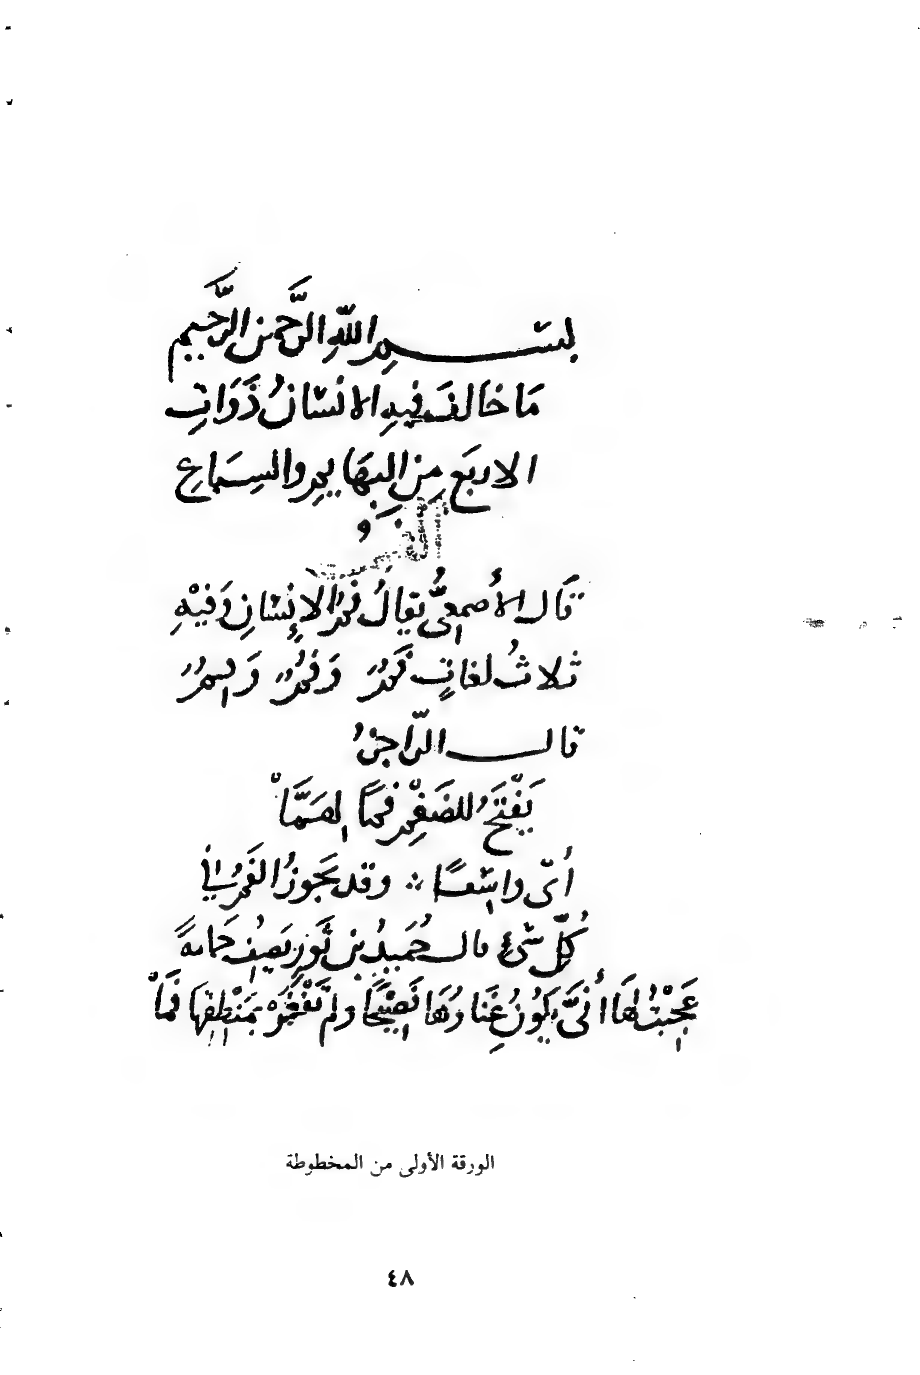 بِسْمِ اللَّهِ الرَّحْمٰنِ الرَّحِيمِ
مَا خَالَفَ فِيهِ الانْسَانُ ذَوَاتِ
الاربَعِ مِنَ البهَايم والسِبَاعِ
الفَمُ
قَال الأصمعىُّ يقالُ فَمُ الإنْسَانِ وَفيْهِ
ثلاثُ لغاتٍ فَمٌ وَفُمٌ وَ
قالـــ الرَّاجزُ
يَفْتَحُ للضَغْمِ فمًا لهَمَّاْ
وَاسِعًا وقد يَجوزُ الفَمُ في
كُلِّ شىءٍ قالـ حُمَيدُ بنُ ثَوْرٍ يَصِفُ حَمامةً
عَجِبْتُ لَهَا أَنَّىٰ يَكُونُ غِنَاوُهَا فَصِيْحًا ولم تَفْغَرْ بمَنْطِقِهَا فَمَاْ
الورقة الأولى من المخطوطة
٤٨